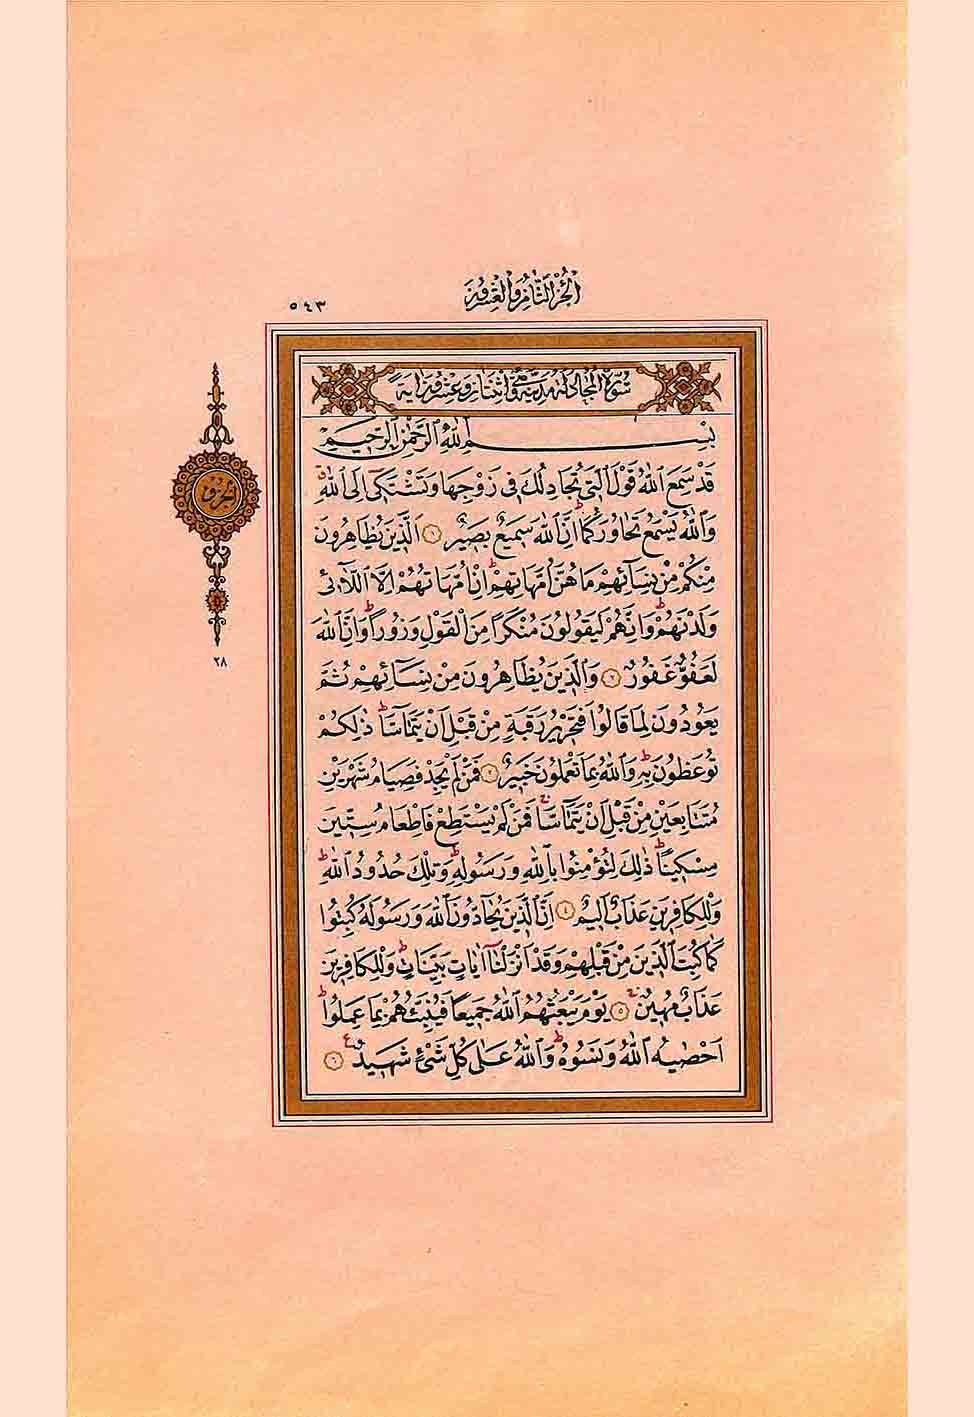 الجزء الثامن والعشرون
٥٤٣
سورة المجادلة مدنية وهي اثنتان وعشرون آية
بِسْمِ اللّٰهِ الرَّحْمٰنِ الرَّحِيمِ
قَدْ سَمِعَ اللّٰهُ قَوْلَ الَّتِي تُجَادِلُكَ فِي زَوْجِهَا وَتَشْتَكِٓي اِلَى اللّٰهِۗ
وَاللّٰهُ يَسْمَعُ تَحَاوُرَكُمَاۜ اِنَّ اللّٰهَ سَمِيعٌ بَصِيرٌ ١ اَلَّذِينَ يُظَاهِرُونَ
مِنْكُمْ مِنْ نِسَٓائِهِمْ مَا هُنَّ اُمَّهَاتِهِمْۜ اِنْ اُمَّهَاتُهُمْ اِلَّا الّٰٓـِٔي
وَلَدْنَهُمْۜ وَاِنَّهُمْ لَيَقُولُونَ مُنْكَرًا مِنَ الْقَوْلِ وَزُورًاۜ وَاِنَّ اللّٰهَ
لَعَفُوٌّ غَفُورٌ ٢ وَالَّذِينَ يُظَاهِرُونَ مِنْ نِسَٓائِهِمْ ثُمَّ
يَعُودُونَ لِمَا قَالُوا فَتَحْرِيرُ رَقَبَةٍ مِنْ قَبْلِ اَنْ يَتَمَٓاسَّاۜ ذٰلِكُمْ
تُوعَظُونَ بِهِۜ وَاللّٰهُ بِمَا تَعْمَلُونَ خَبِيرٌ ٣ فَمَنْ لَمْ يَجِدْ فَصِيَامُ شَهْرَيْنِ
مُتَتَابِعَيْنِ مِنْ قَبْلِ اَنْ يَتَمَٓاسَّاۚ فَمَنْ لَمْ يَسْتَطِعْ فَاِطْعَامُ سِتِّينَ
مِسْكِينًاۜ ذٰلِكَ لِتُؤْمِنُوا بِاللّٰهِ وَرَسُولِهِۜ وَتِلْكَ حُدُودُ اللّٰهِۜ
وَلِلْكَافِرِينَ عَذَابٌ اَلِيمٌ ٤ اِنَّ الَّذِينَ يُحَٓادُّونَ اللّٰهَ وَرَسُولَهُ كُبِتُوا
كَمَا كُبِتَ الَّذِينَ مِنْ قَبْلِهِمْ وَقَدْ اَنْزَلْنَٓا اٰيَاتٍ بَيِّنَاتٍۜ وَلِلْكَافِرِينَ
عَذَابٌ مُهِينٌۚ ٥ يَوْمَ يَبْعَثُهُمُ اللّٰهُ جَمِيعًا فَيُنَبِّئُهُمْ بِمَا عَمِلُواۜ
اَحْصٰيهُ اللّٰهُ وَنَسُوهُۜ وَاللّٰهُ عَلٰى كُلِّ شَيْءٍ شَهِيدٌ ٦
الجزؤ
٢٨